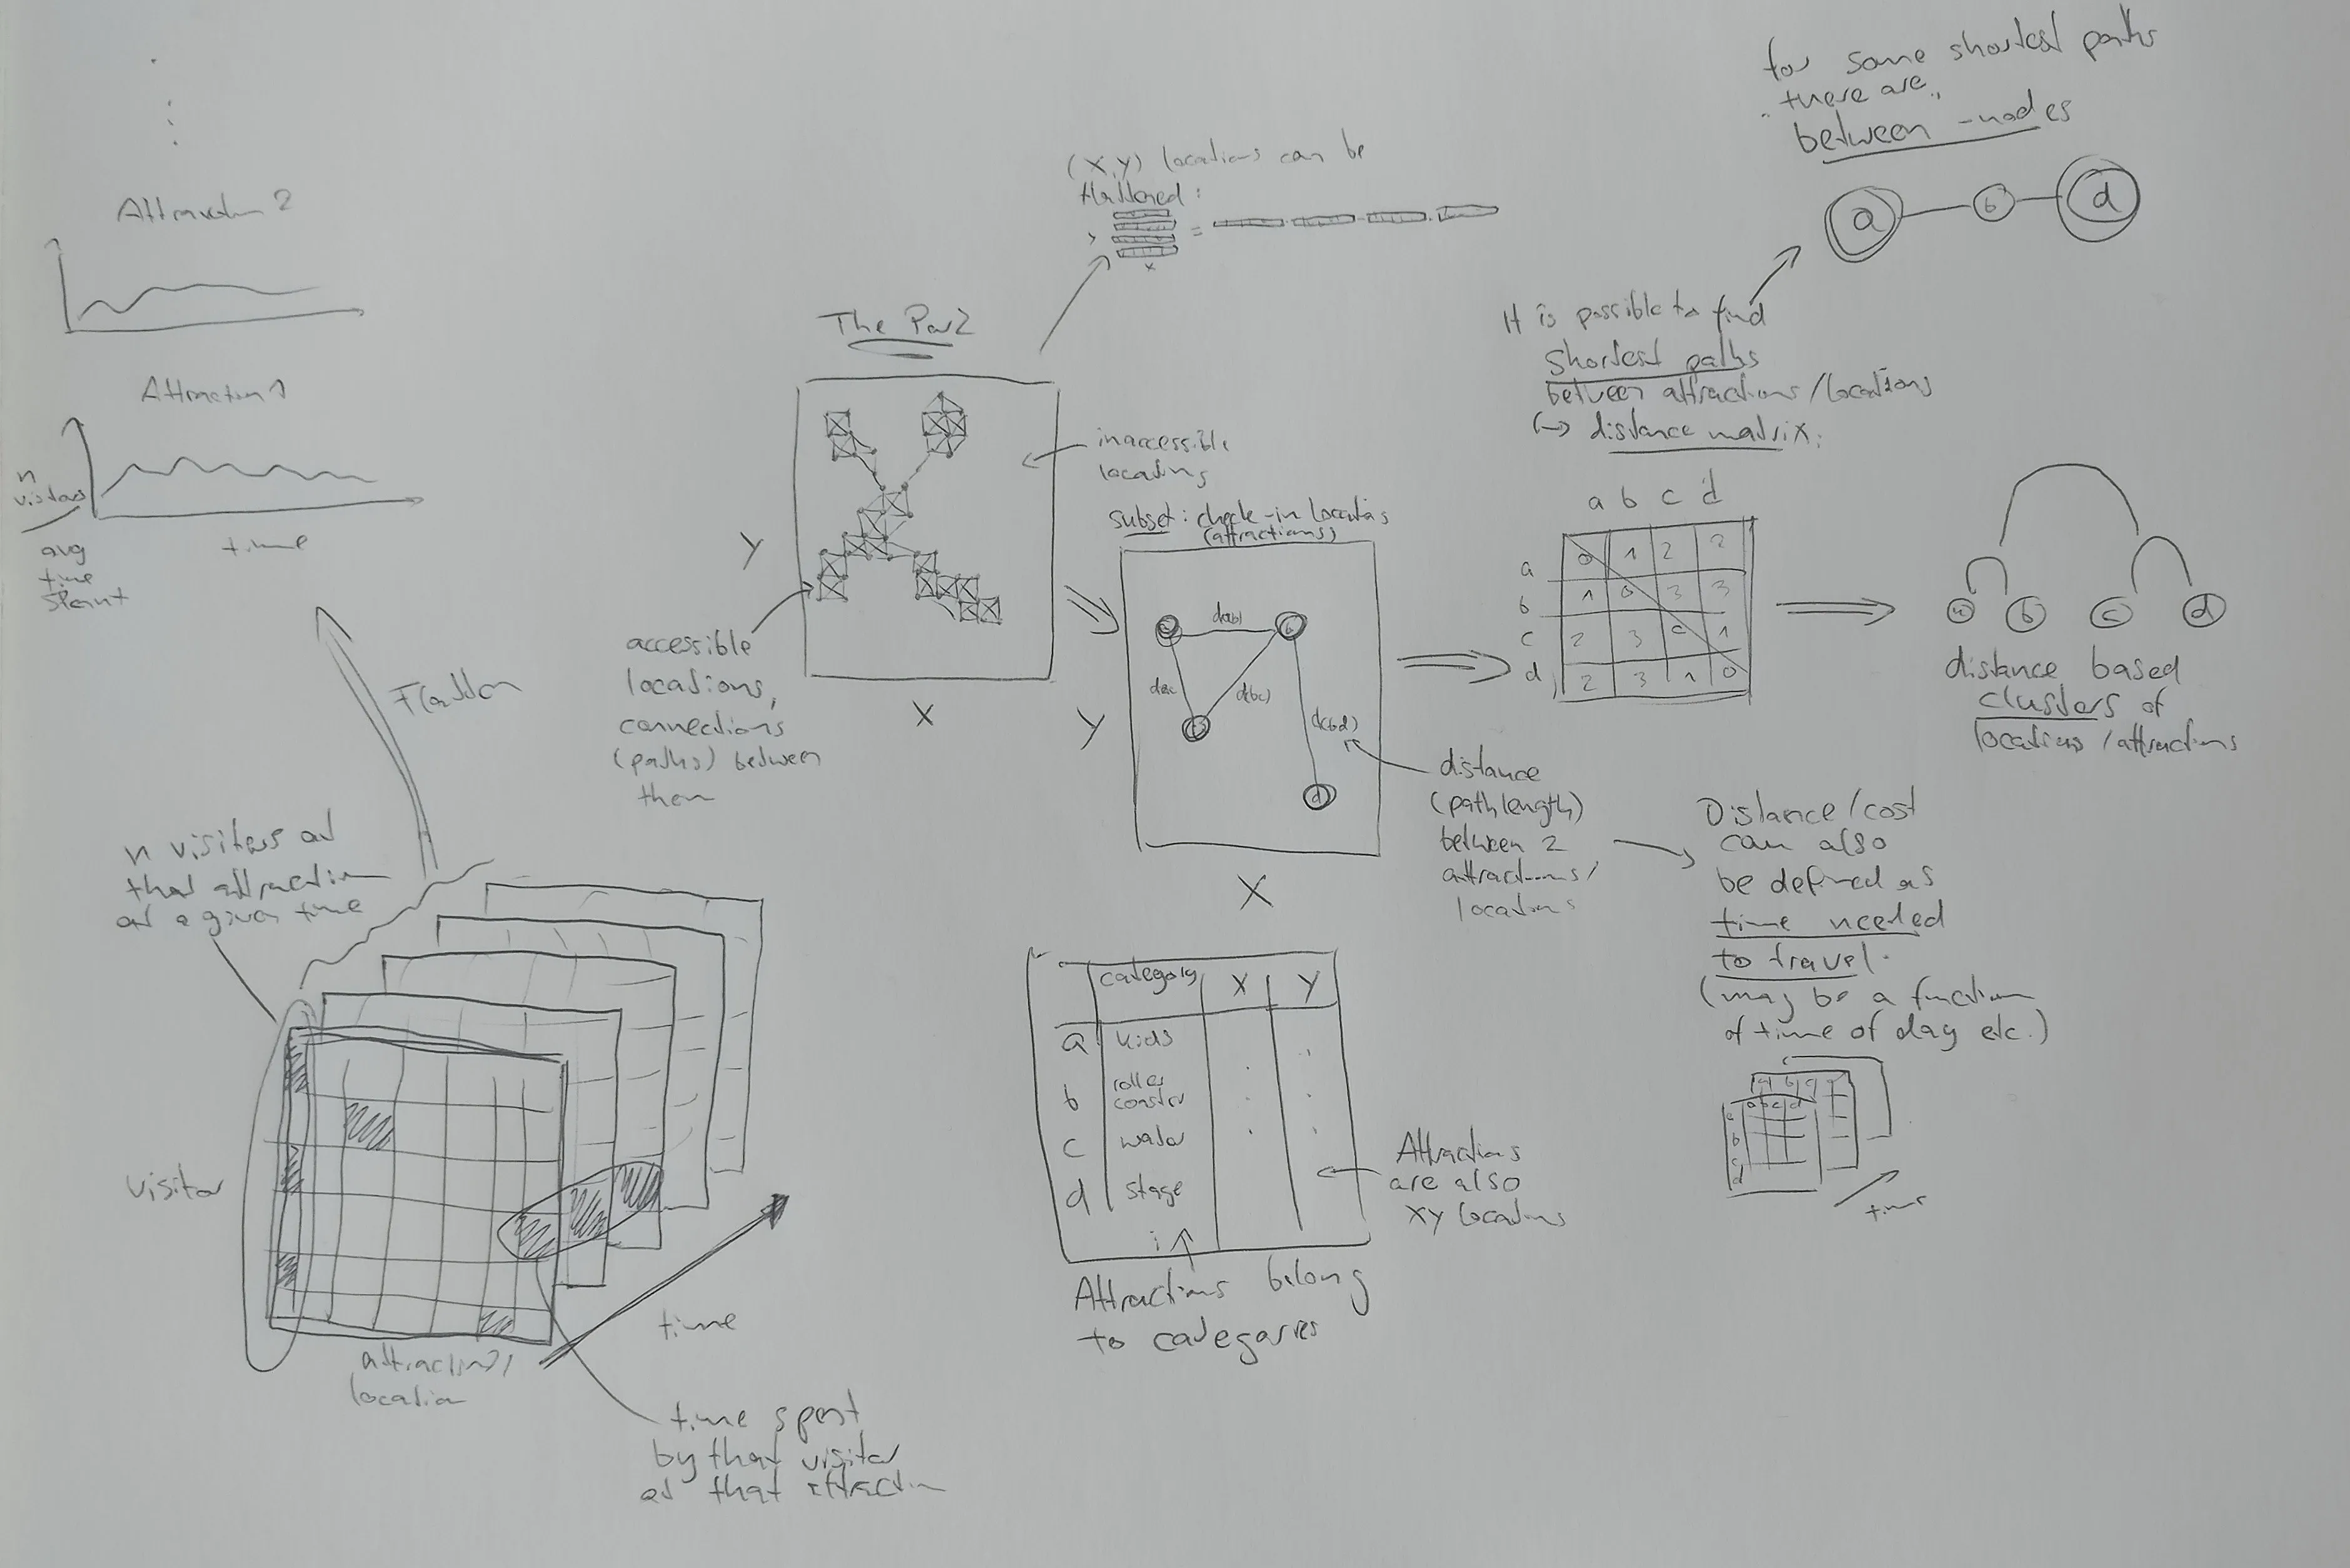 for some shortest paths
there are
between-nodes
a b d
(X,Y) locations can be
flattened:
y =
x
Attraction 2
The Park
It is possible to find
shortest paths
between attractions/locations
↳ distance matrix:
Attraction 1
n
visitors
avg
time
spent
time
inaccessible
locations
subset: check-in locations
(attractions)
Y
X
accessible
locations,
connections
(paths) between
them
a b c d
a 0 1 2 2
b 1 0 3 3
c 2 3 0 1
d 2 3 1 0
a b c d
distance based
clusters of
locations/attractions
a d(ab) b
d(ac) d(bc)
c d(bd)
d
Y
X
distance
(path length)
between 2
attractions/
locations
Distance/cost
can also
be defined as
time needed
to travel.
(may be a function
of time of day etc.)
a b c d
a b c d
a
b
c
d
time
Flatten
n visitors at
that attraction
at a given time
visitor
attraction/
location
time
time spent
by that visitor
at that attraction
category X Y
a kids
b roller
coaster
c water
d stage
Attractions
are also
XY locations
Attractions belong
to categories